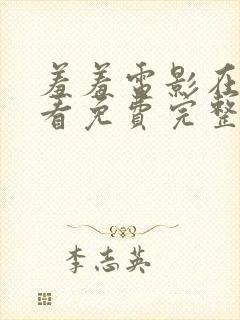 羞羞雷影在
看免費完整
李志英